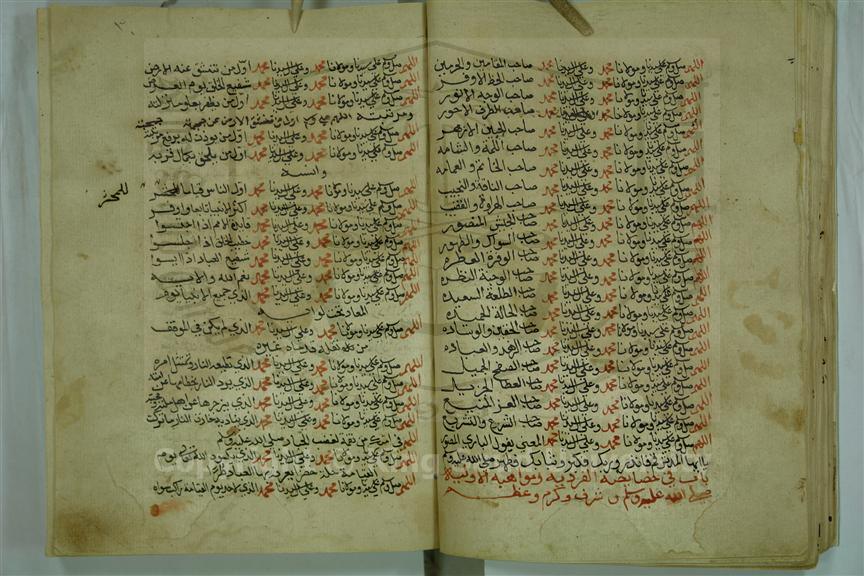 اللهم صل وسلم على سيدنا ومولانا محمد وعلى آل سيدنا محمد صاحب المقامين والحرمين
اللهم صل وسلم على سيدنا ومولانا محمد وعلى آل سيدنا محمد صاحب الحظ الاوفر
اللهم صل وسلم على سيدنا ومولانا محمد وعلى آل سيدنا محمد صاحب الوجه الانور
اللهم صل وسلم على سيدنا ومولانا محمد وعلى آل سيدنا محمد صاحب الطرف الاحور
اللهم صل وسلم على سيدنا ومولانا محمد وعلى آل سيدنا محمد صاحب الجبين الازهر
اللهم صل وسلم على سيدنا ومولانا محمد وعلى آل سيدنا محمد صاحب اللمة والشامه
اللهم صل وسلم على سيدنا ومولانا محمد وعلى آل سيدنا محمد صاحب الخاتم والعمامه
اللهم صل وسلم على سيدنا ومولانا محمد وعلى آل سيدنا محمد صاحب الناقة والنجيب
اللهم صل وسلم على سيدنا ومولانا محمد وعلى آل سيدنا محمد صاحب الهراوة والقضيب
اللهم صل وسلم على سيدنا ومولانا محمد وعلى آل سيدنا محمد صاحب الجيش المنصور
اللهم صل وسلم على سيدنا ومولانا محمد وعلى آل سيدنا محمد صاحب السواك والطهور
اللهم صل وسلم على سيدنا ومولانا محمد وعلى آل سيدنا محمد صاحب الوفرة العطره
اللهم صل وسلم على سيدنا ومولانا محمد وعلى آل سيدنا محمد صاحب الوجنة النظره
اللهم صل وسلم على سيدنا ومولانا محمد وعلى آل سيدنا محمد صاحب الطلعة السعيده
اللهم صل وسلم على سيدنا ومولانا محمد وعلى آل سيدنا محمد صاحب الحالة الحميده
اللهم صل وسلم على سيدنا ومولانا محمد وعلى آل سيدنا محمد صاحب الخفين والوساده
اللهم صل وسلم على سيدنا ومولانا محمد وعلى آل سيدنا محمد صاحب الزهد والعباده
اللهم صل وسلم على سيدنا ومولانا محمد وعلى آل سيدنا محمد صاحب الصفح الجميل
اللهم صل وسلم على سيدنا ومولانا محمد وعلى آل سيدنا محمد صاحب العطا الجزيل
اللهم صل وسلم على سيدنا ومولانا محمد وعلى آل سيدنا محمد صاحب العز المنيع
اللهم صل وسلم على سيدنا ومولانا محمد وعلى آل سيدنا محمد صاحب الشرع والتشريع
اللهم صل وسلم على سيدنا ومولانا محمد وعلى آل سيدنا محمد المعني بقول الباري المصور
يا ايها المدثر قم فانذر وربك فكبر وثيابك فطهر صلى الله عليه وسلم
باب في خصايصه الفردية ومواهبه الاولية
صلى الله عليه وسلم وشرف وكرم وعظم
اللهم صل وسلم على سيدنا ومولانا محمد وعلى آل سيدنا محمد اول من تنشق عنه الارض
اللهم صل وسلم على سيدنا ومولانا محمد وعلى آل سيدنا محمد شفيع الخلق يوم العرض
اللهم صل وسلم على سيدنا ومولانا محمد وعلى آل سيدنا محمد اول من يظفر بعلو منزلته
اللهم صل وسلم على سيدنا ومولانا محمد وعلى آل سيدنا محمد اول من يوذن له برفع
اللهم صل وسلم على سيدنا ومولانا محمد وعلى آل سيدنا محمد اول من يلحق بكمال قربه
وانسه
اللهم صل وسلم على سيدنا ومولانا محمد وعلى آل سيدنا محمد اول الناس قياما للمحشر
للمحشر
اللهم صل وسلم على سيدنا ومولانا محمد وعلى آل سيدنا محمد اكثر الانبيا تابعا واوفر
اللهم صل وسلم على سيدنا ومولانا محمد وعلى آل سيدنا محمد قايد الامم اذا
اللهم صل وسلم على سيدنا ومولانا محمد وعلى آل سيدنا محمد
اللهم صل وسلم على سيدنا ومولانا محمد وعلى آل سيدنا محمد شفيع العباد اذا ايسوا
اللهم صل وسلم على سيدنا ومولانا محمد وعلى آل سيدنا محمد
اللهم صل وسلم على سيدنا ومولانا محمد وعلى آل سيدنا محمد الذي جميع الانبيا يوم
المعاد تحت لوائه
اللهم صل وسلم على سيدنا ومولانا محمد وعلى آل سيدنا محمد الذي في الموقف
اللهم صل وسلم على سيدنا ومولانا محمد وعلى آل سيدنا محمد الذي تطيعه النار وتمتثل امره
اللهم صل وسلم على سيدنا ومولانا محمد وعلى آل سيدنا محمد الذي يرد النار
اللهم صل وسلم على سيدنا ومولانا محمد وعلى آل سيدنا محمد الذي يزجرها عن اهل
اللهم صل وسلم على سيدنا ومولانا محمد وعلى آل سيدنا محمد الذي يناديه خازن النار ما تركت
في امتك من نقمة لغضب الجبار صلى الله عليه وسلم
اللهم صل وسلم على سيدنا ومولانا محمد وعلى آل سيدنا محمد الذي يوم
اللهم صل وسلم على سيدنا ومولانا محمد وعلى آل سيدنا محمد الذي لا احد يوم القيامة راكب سواه